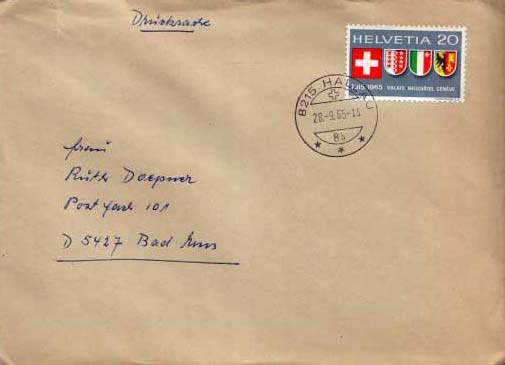 Drucksache
HELVETIA 20
1815 1965 VALAIS NEUCHÂTEL GENÈVE
8215 HALLAU
28.-9.65-14
8b
Frau
Ruth Doepner
Postfach 101
D 5427 Bad Ems